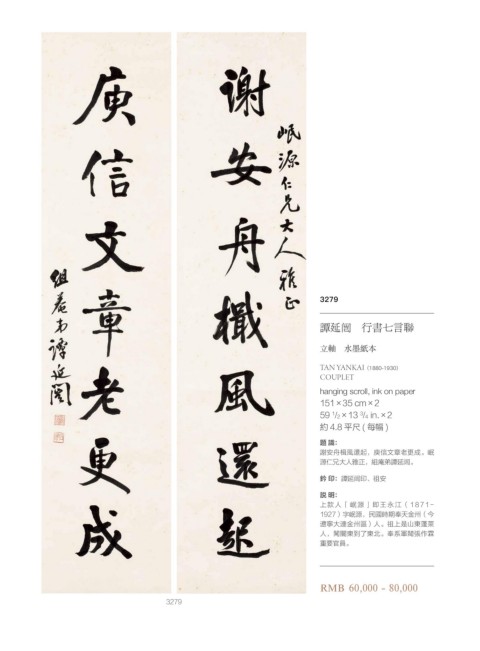 謝安舟檝風還起
岷源仁兄大人雅正
庾信文章老更成
組菴弟譚延闓
3279
3279
譚延闿 行書七言聯
立軸 水墨紙本
TAN YANKAI (1880-1930)
COUPLET
hanging scroll, ink on paper
151×35 cm×2
59 1/2×13 3/4 in.×2
約 4.8 平尺 (每幅)
題識：
謝安舟楫風還起，庾信文章老更成。岷
源仁兄大人雅正，組庵弟譚延闿。
鈐印：譚延闿印、組安
說明：
上款人「岷源」即王永江（1871-
1927）字岷源，民國時期奉天金州（今
遼寧大連金州區）人。祖上是山東蓬萊
人，闖關東到了東北。奉系軍閥張作霖
重要官員。
RMB 60,000 - 80,000